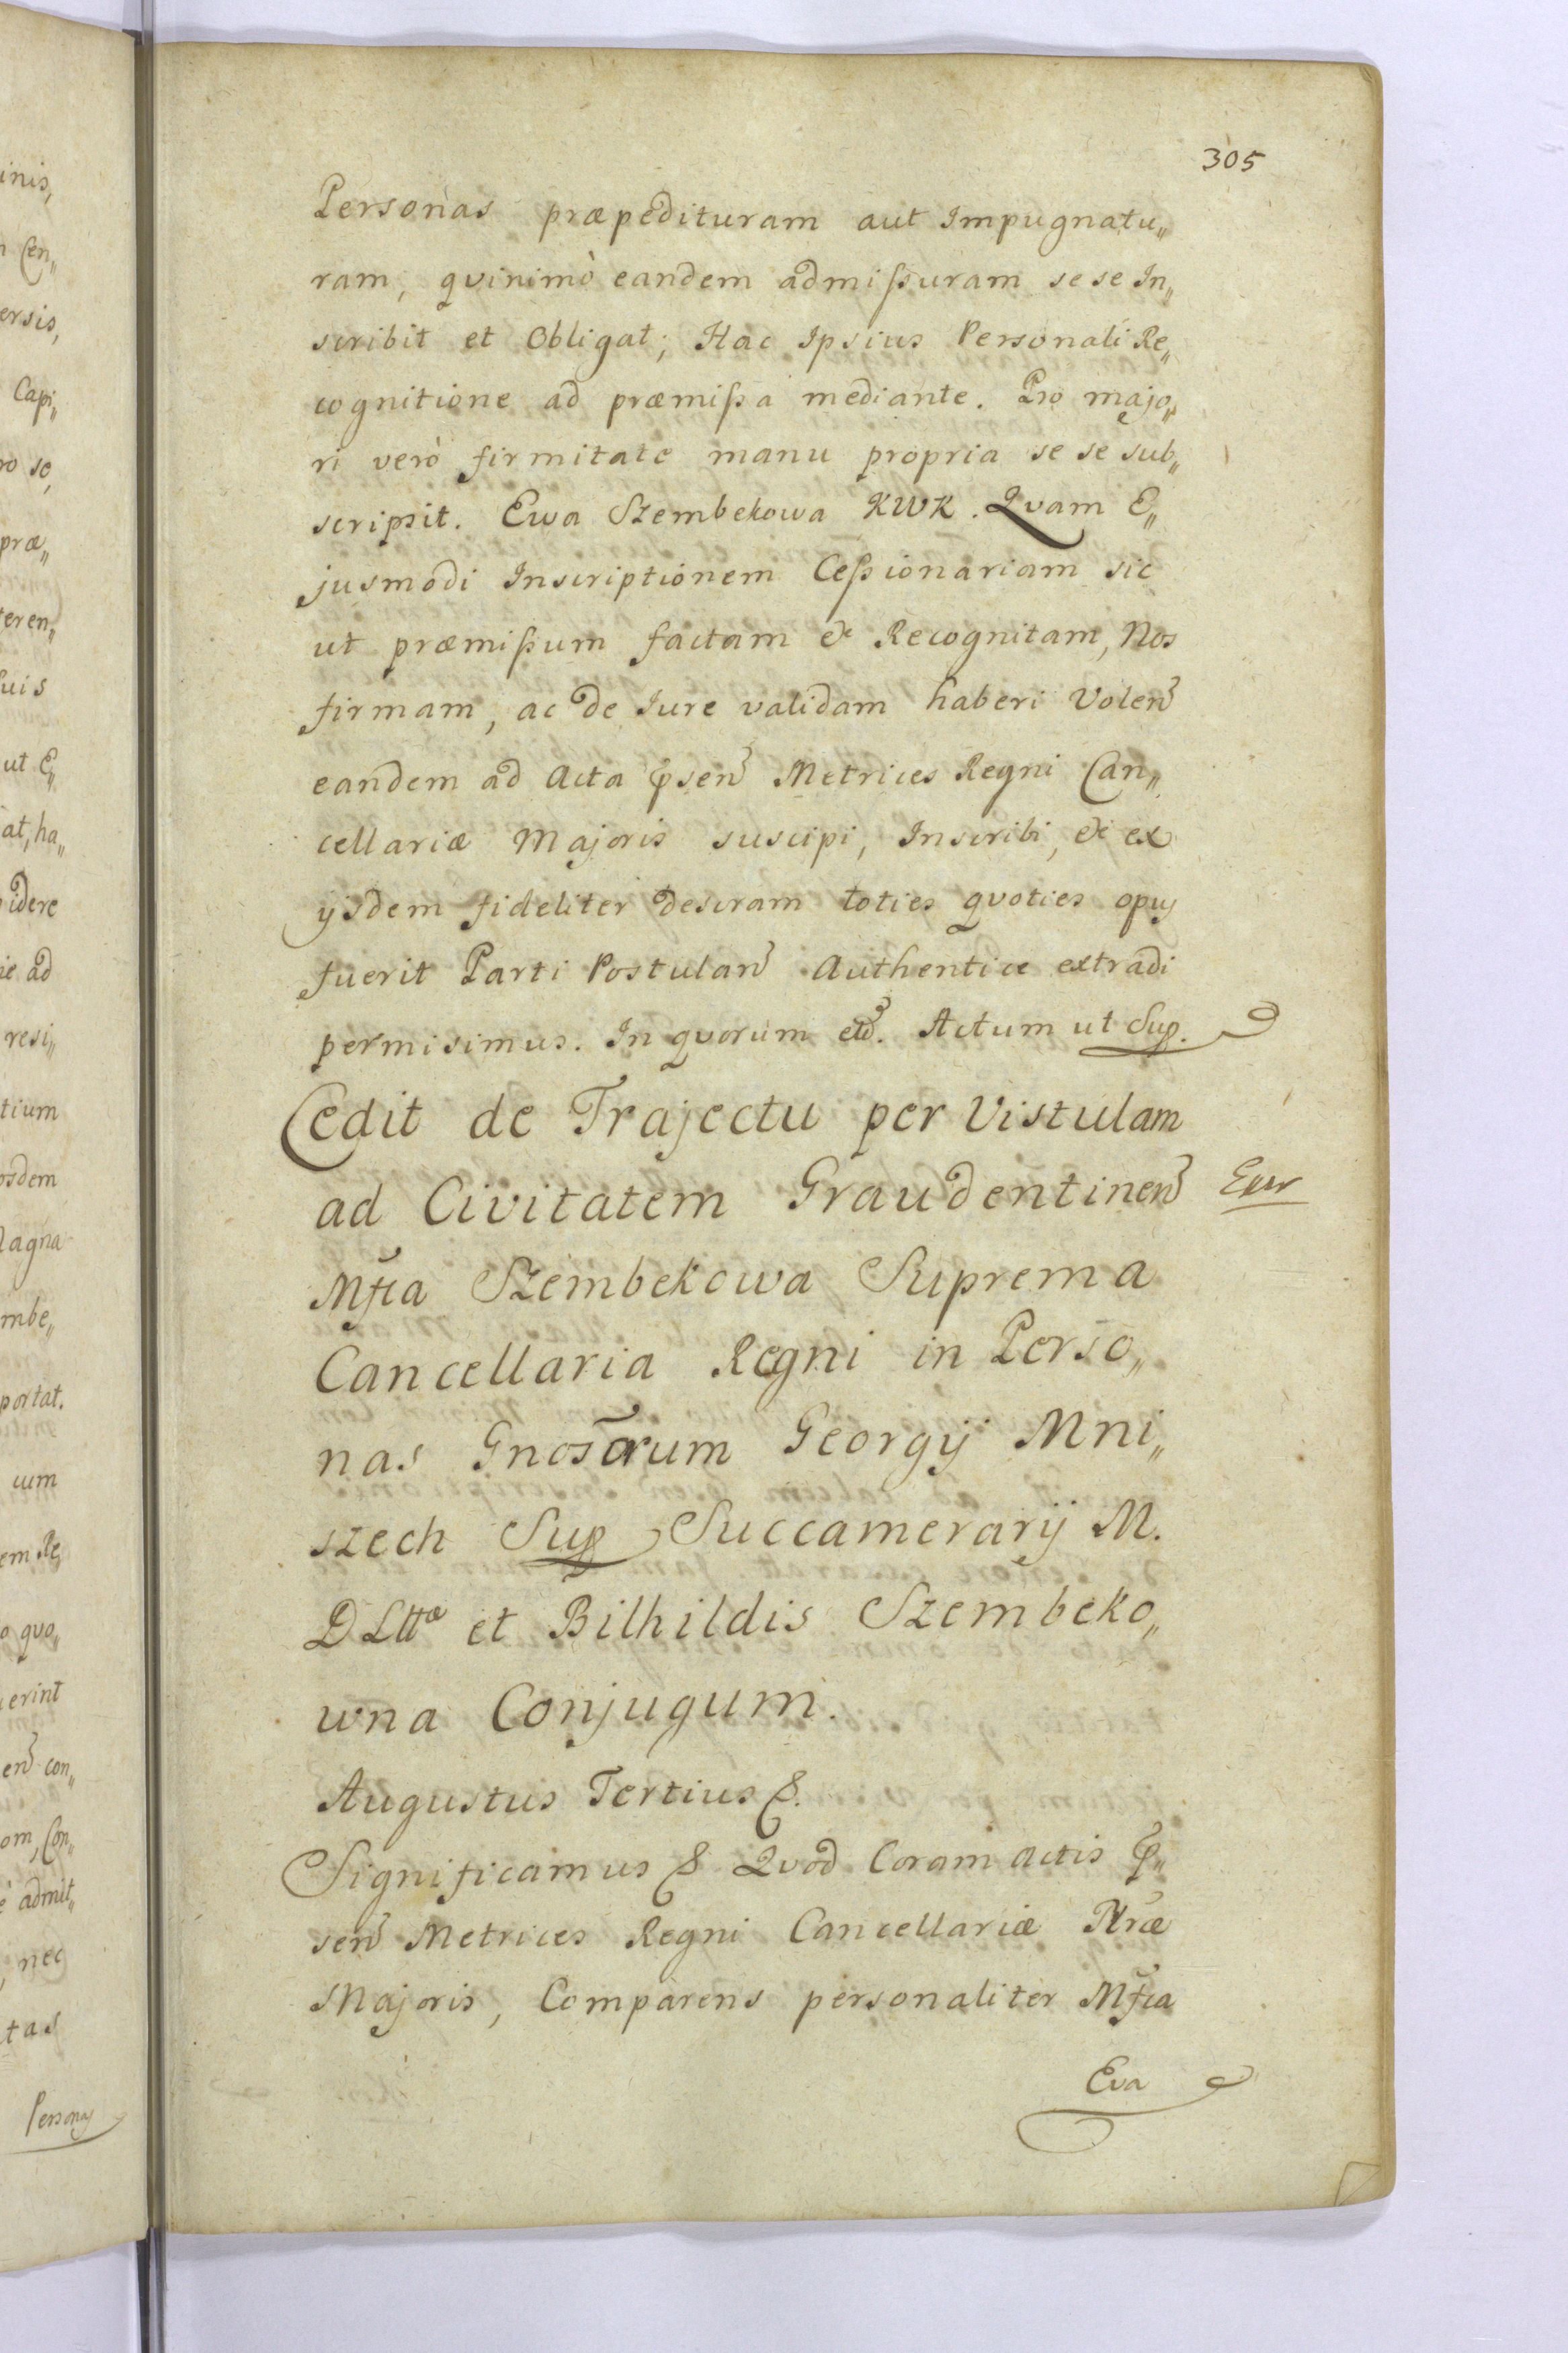 305
Personas præpedituram aut Impugnatu„
ram, qvinimò eandem admißuram se se In„
scribit et Obligat; Hac Ipsius Personali Re„
cognitione ad præmißa mediante. Pro majo„
ri verò firmitate manu propria se se sub„
scripsit. Ewa Szembekowa KWK. Qvam E„
jusmodi Inscriptionem Ceßionariam sic
ut præmißum factam & Recognitam, Nos
firmam, ac de Jure validam haberi Volen
eandem ad Acta psen Metrices Regni Can„
cellariæ Majoris suscipi, Inscribi, & ex
ijsdem fideliter descram toties qvoties opus
fuerit Parti Postulan Authentice extradi
permisimus. In qvorum etc. Actum ut Sup.
Cedit de Trajectu per Vistulam
ad Civitatem Graudentinen
Mfca Szembekowa Suprema
Cancellaria Regni in Perso„
nas Gnosorum Georgij Mni„
szech Sup Succamerarij M.
D Lttæ et Bilhildis Szembeko„
wna Conjugum.
Augustus Tertius &.
Significamus & Qvod Coram actis p„
sen Metrices Regni Cancellariæ Nræ
Majoris, Comparens personaliter Mfca
Eva
inis,
Cen„
ersis,
Capi„
ro se,
præ„
teren„
suis
ut E„
at, ha„
idere
ie ad
resi„
tium
osdem
Magna
mbe„
portat.
cum
em Re„
o qvo„
erint
en con„
om, Con„
è admit„
, nec
tas
Personas